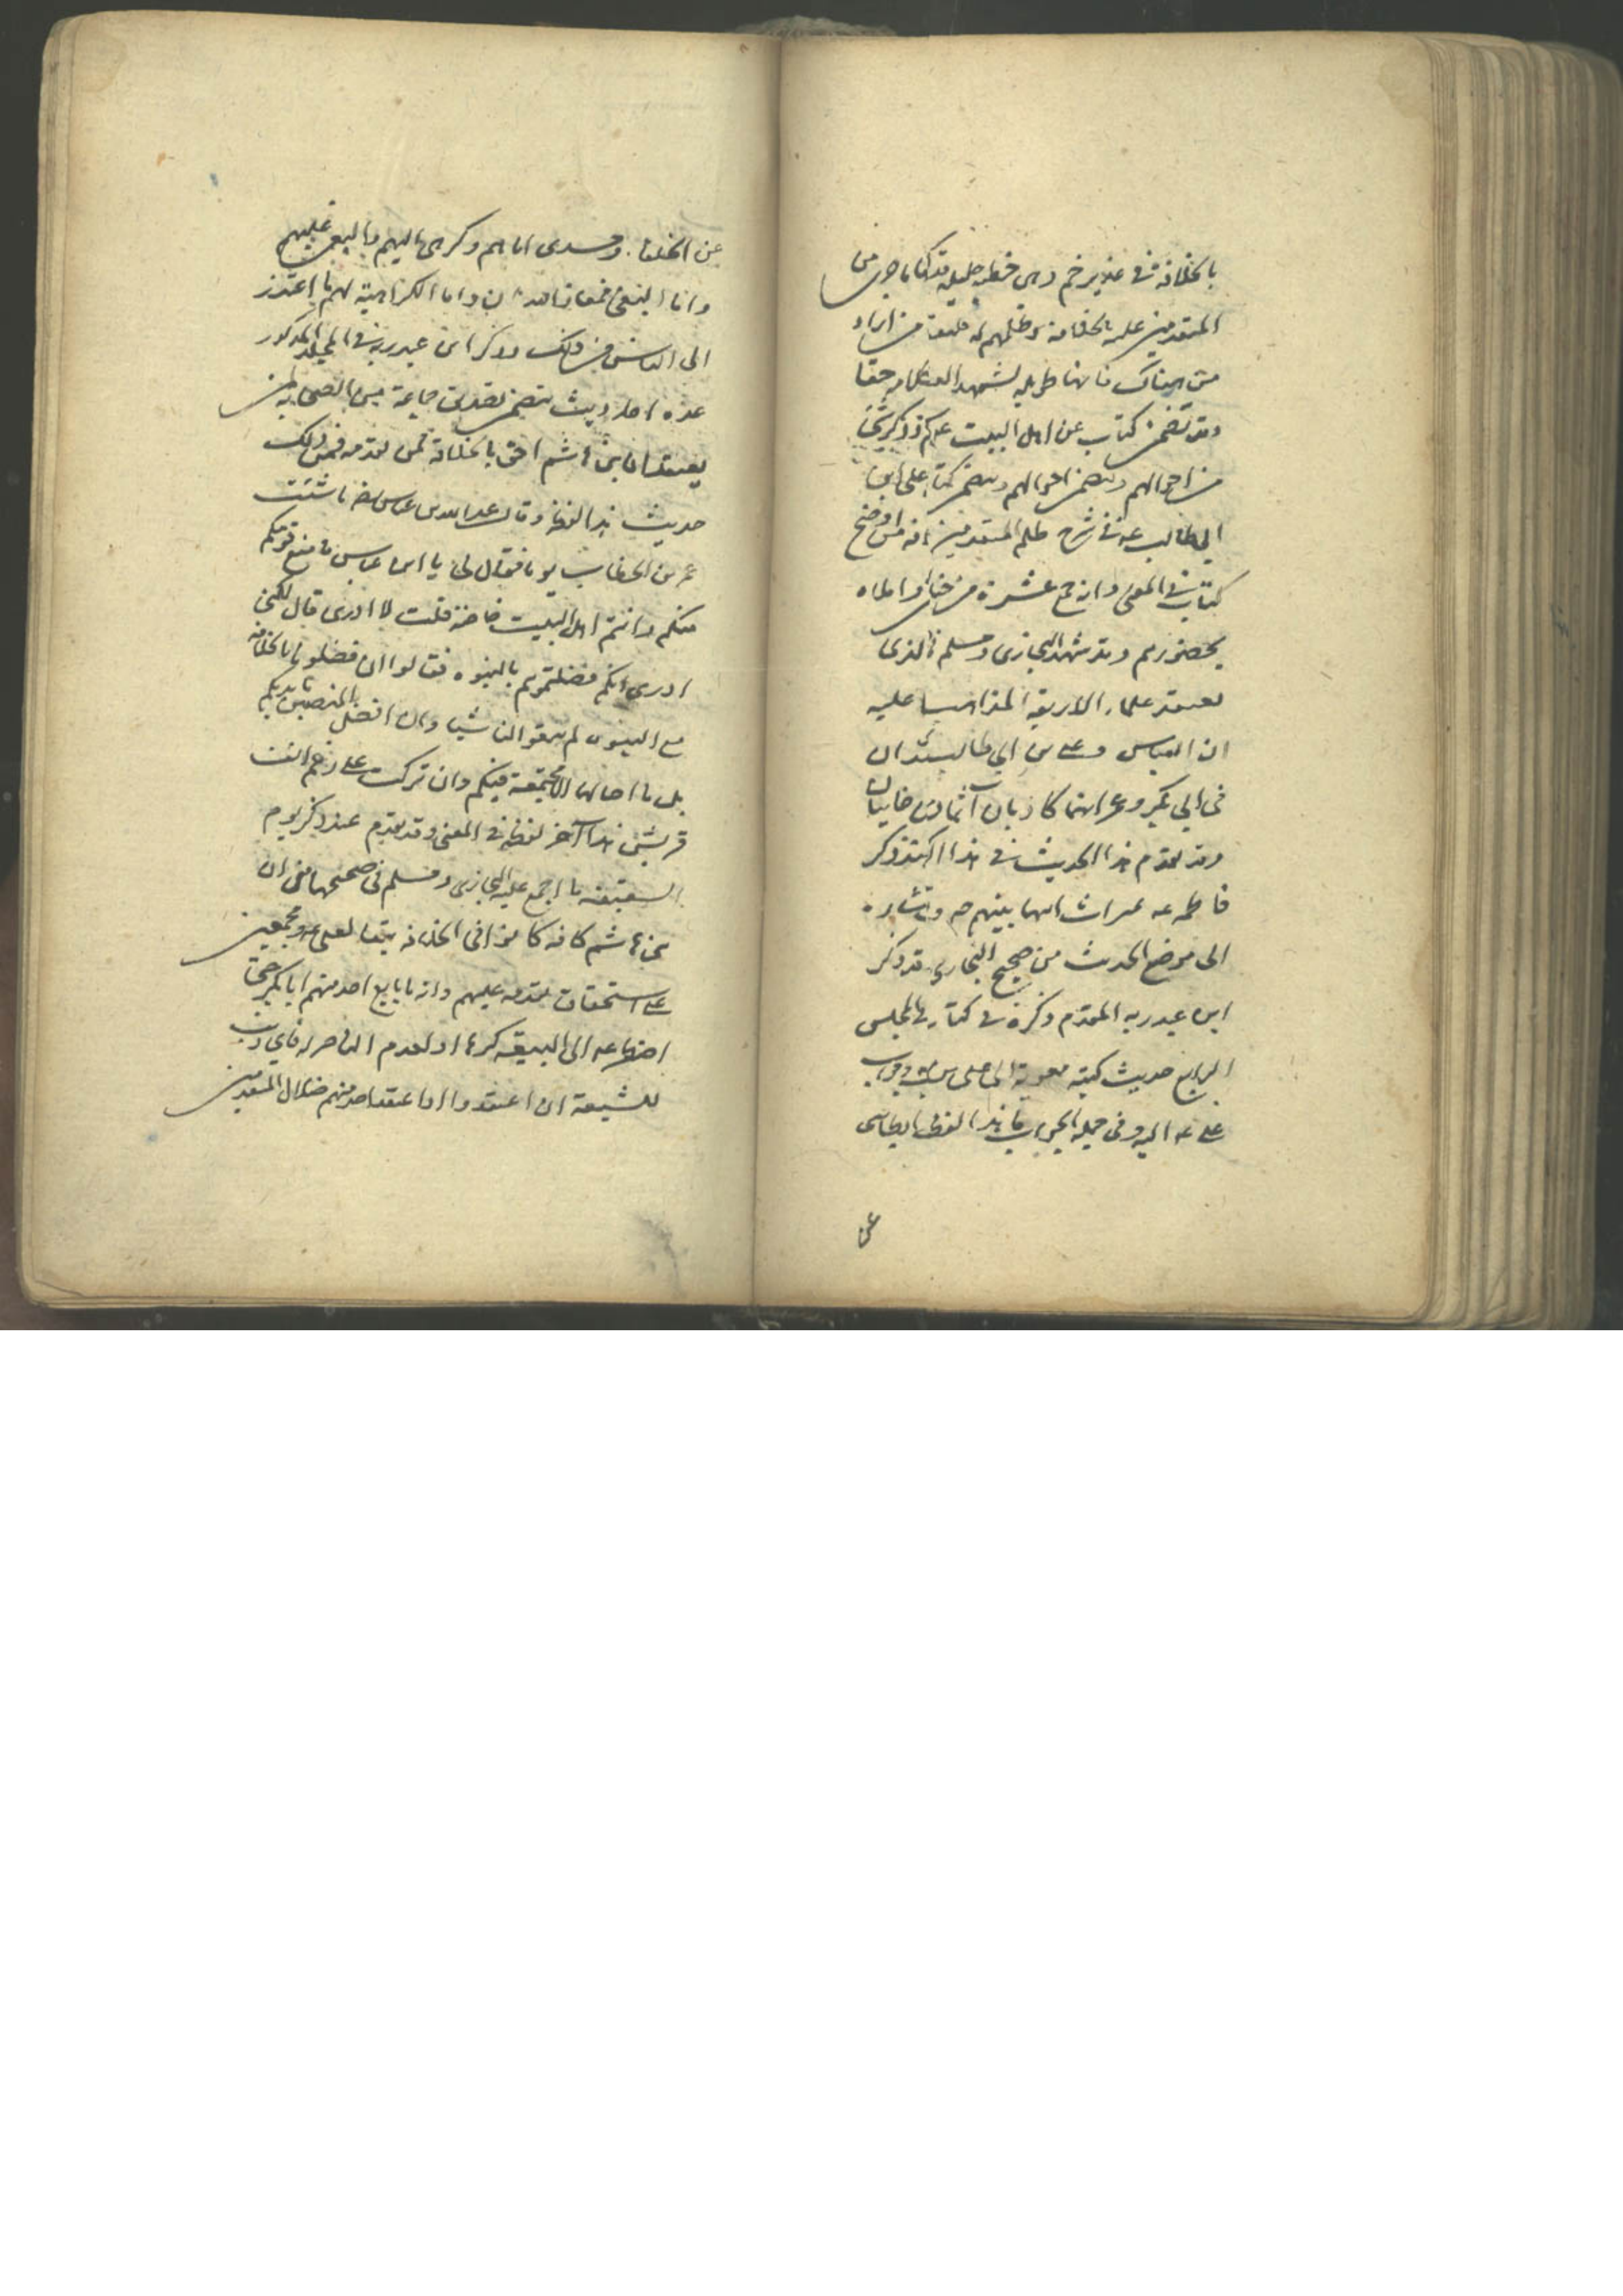 بالخلافة في غدير خم وهي خطبة جليلة قد كنا ما جرى من
المتقدمين عليه بالخلافة وظلمهم له فليقف من اراد
من هناك فانها طويلة لشهد العقلا حقا
وقد تضمن كتاب عن اهل البيت ذكر شي
من احوالهم وتضمن احوالهم وتضمن كتاب علي ابن
ابي طالب عه في شرح ظلم المتقدمين انه من اوضح
كتاب في المعنى وانه جمع عشرة من املاه
بحضورهم وقد شهد البخاري ومسلم الذي
يعتمد علماء الاربعة المذاهب عليه
ان العباس وعلي بن ابي طالب ان
في ابي بكر وعمر انهما كاذبان آثمان خاينان
وقد تقدم هذا الحديث في هذا عند ذكر
فاطمة عه ميراث ابيها
الى موضع الحديث من صحيح البخاري قد ذكر
ابن عبد ربه المقدم ذكره في كتابه في المجلس
الرابع حديث كتبه معوية الى علي وجواب
علي عه اليه وفي جملة الجواب ما هذا لفظه
عن
عن الخلفا وحسدي اياهم وكراهي اليهم والبغي عليهم
واما البغي فمعاذ الله ان واما الكراهية لهم ما اعتذر
الى الناس من ذلك وذكر ابن عبد ربه في المجلد المذكور
عدة احاديث تتضمن تصديق جماعة من الصحابة
يعتقد ان بني هاشم احق بالخلافة ممن تقدمه فمن ذلك
حديث هذا لفظه وقال عبد الله بن عباس ماشيت
عمر بن الخطاب يوما فقال لي يا ابن عباس ما منع قومكم
منكم وانتم اهل البيت خاصة قلت لا ادري قال لكني
ادري انكم فضلتموهم بالنبوة فقالوا ان فضلونا بالخلافة
مع النبوة لم يبقوا لنا شيئا وان افضل النصيبين بايديكم
بل ما اخالها الا مجتمعة فيكم وان تركت على رغم انف
قريش هذا آخر لفظه في المعنى وقد تقدم عند ذكر يوم
السقيفة ما اجمع عليه البخاري ومسلم في صحيحهما من ان
بني هاشم كافة كانوا في الخلافة تبعا لعلي عه ومجمعين
على استحقاق تقدمه عليهم وانه ما بايع احد منهم ابا بكر حتى
اضطر الى البيعة كرها او لعدم الناصر له فاي ذنب
للشيعة ان اعتقدوا ما اعتقد احد منهم ضلال المتقدمين